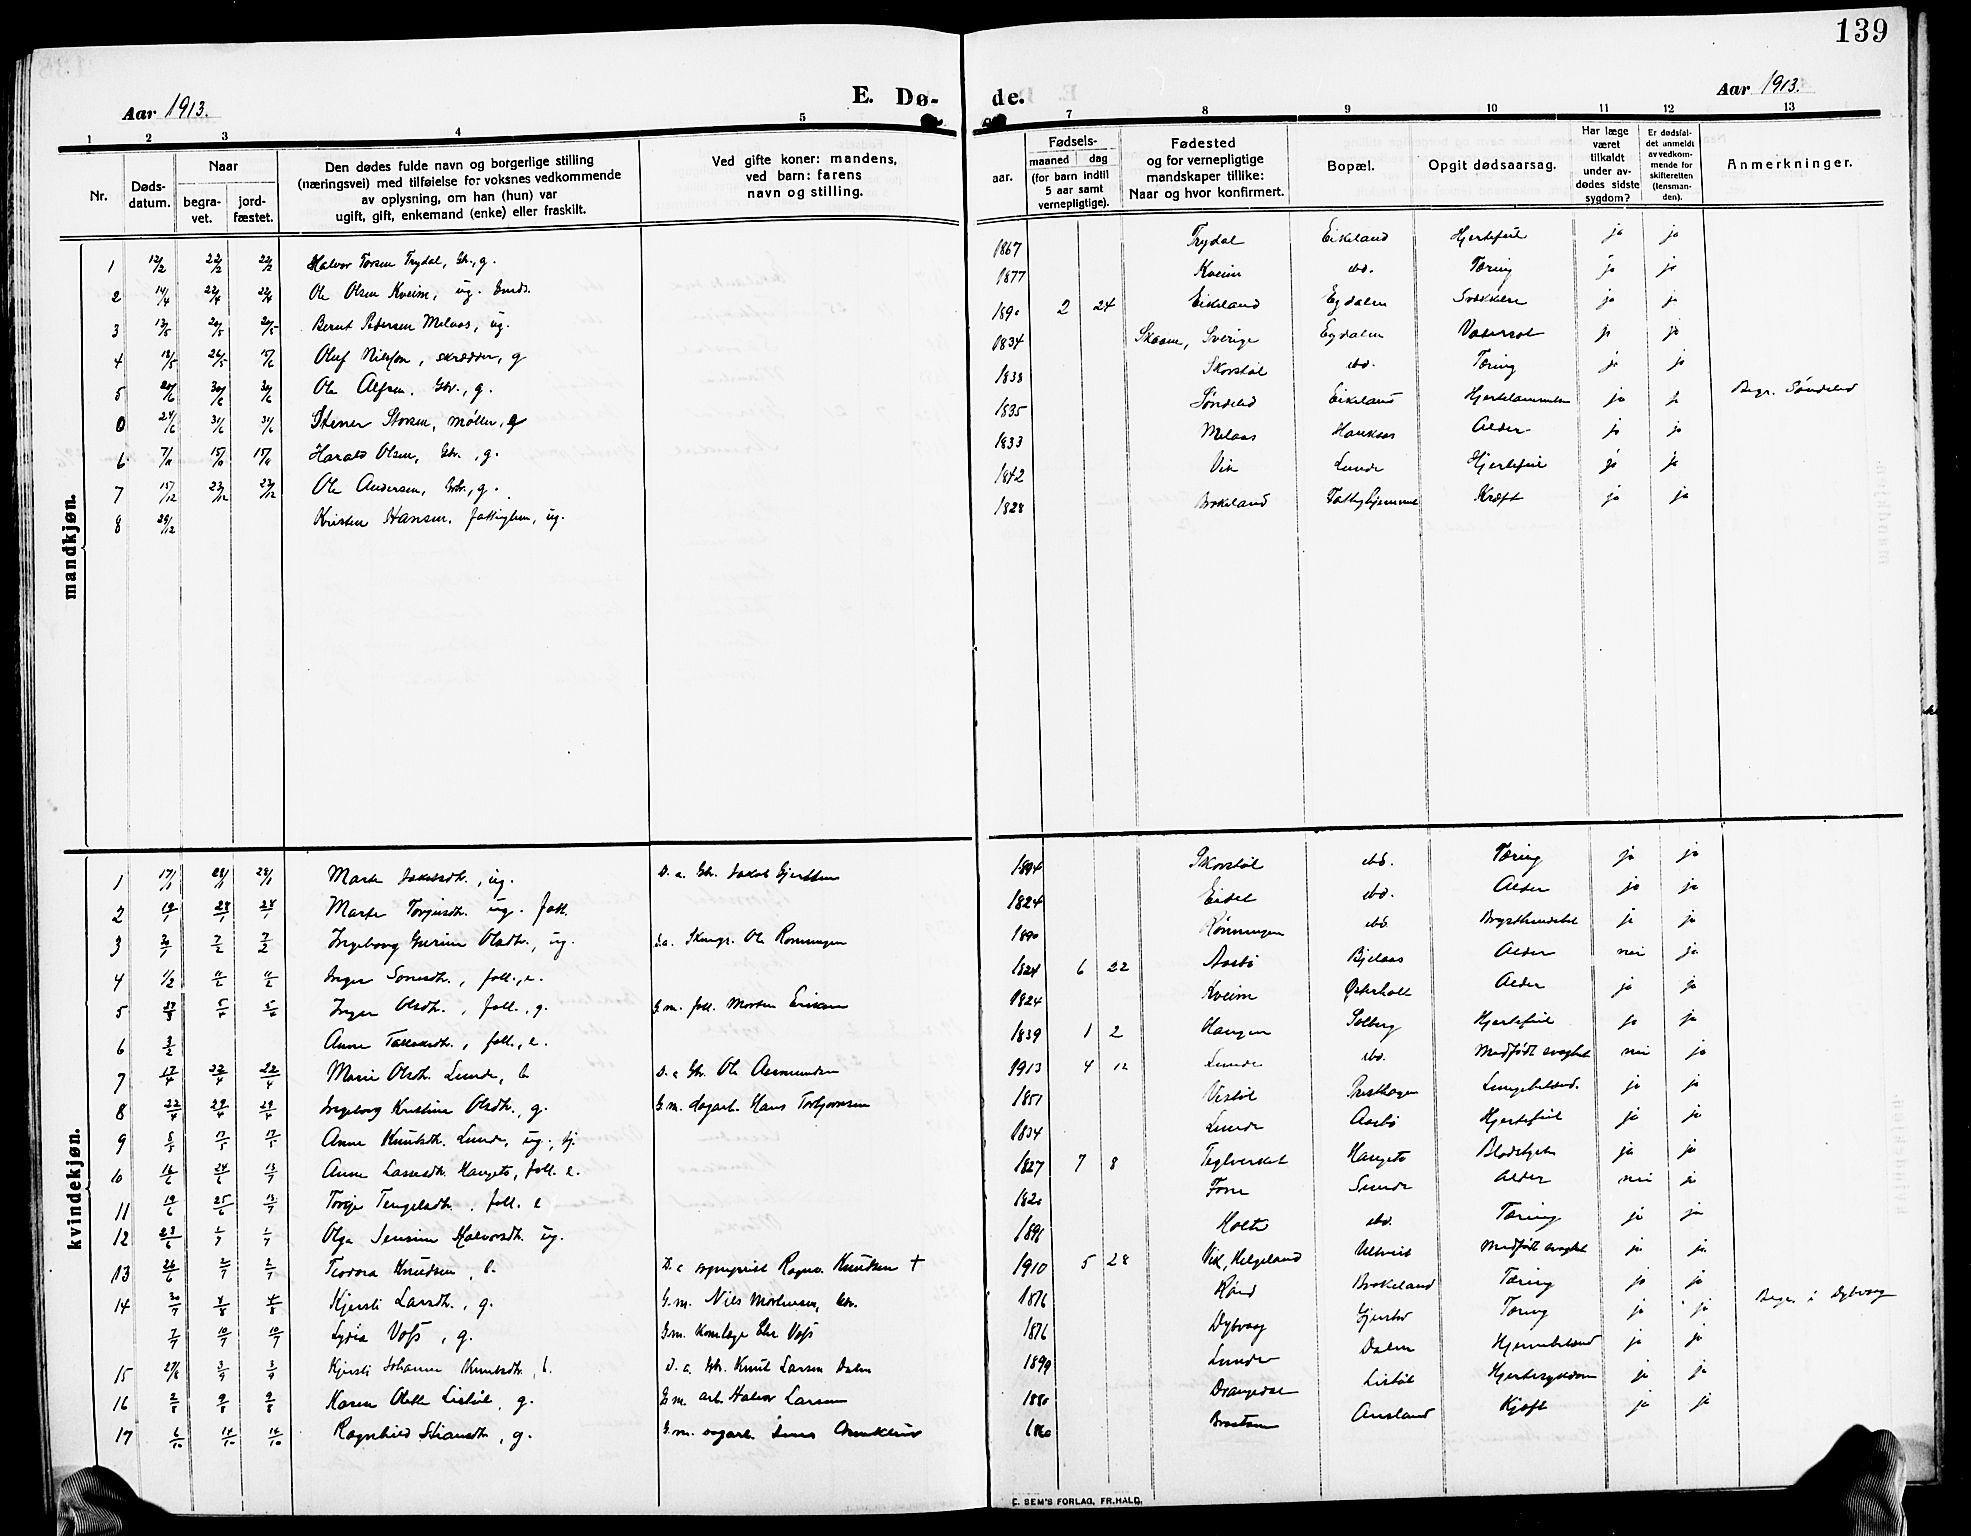 139
Aar 1913.
E. Dø-
de.
Aar 1913.
1 2 3 4 5 7 8 9 10 11 12 13
Nr.
Døds-
datum.
Naar
begra-
vet.
jord-
fæstet.
Den dødes fulde navn og borgerlige stilling
(næringsvei) med tilføielse for voksnes vedkommende
av oplysning, om han (hun) var
ugift, gift, enkemand (enke) eller fraskilt.
Ved gifte koner: mandens,
ved barn: farens
navn og stilling.
aar.
Fødsels-
maaned dag
(for barn indtil
5 aar samt
vernepligtige).
Fødested
og for vernepligtige
mandskaper tillike:
Naar og hvor konfirmert.
Bopæl.
Opgit dødsaarsag.
Har læge
været
tilkaldt
under av-
dødes sidste
sygdom?
Er dødsfal-
det anmeldt
av vedkom-
mende for
skifteretten
(lensman-
den).
Anmerkninger.
mandkjøn.
1 12/2 22/2 22/2 Halvor Torsen Trydal, Gbr., g. 1867 Trydal Eikeland Hjertefeil ja ja
2 14/4 22/4 22/4 Ole Olsen Kveim, ug. 1877 Kveim ibd. Tæring ja ja
3 13/5 20/5 20/5 Bernt Pedersen Melaas, ug. 1890 2 24 Eikeland Egdalen ja ja
4 18/5 26/5 15/6 Oluf Nilsson, skrædder, g 1834 Skaane, Sverige Egdalen Vatersot ja ja
5 20/6 30/6 30/6 Ole Alfsen, Gbr., g. 1838 Skorstøl ibd. Tæring ja ja
0 24/6 31/6 31/6 Stener Storsen, møller, g 1835 Søndeled Eikeland Hjertelammelse ja ja Begr. Søndeled
6 Harald Olsen, Gbr., g. 1833 Melaas Haukaas Alder ja ja
7 15/12 23/12 23/12 Ole Andersen, Gbr., g. 1842 Vik Lunde Hjertefeil ja ja
8 29/12 Kristen Hansen, fattiglem, ug. 1828 Brokeland Fattighjemmet Kræft ja ja
kvindekjøn.
1 17/1 28/1 28/1 Marte Jakobsdtr., ug. D. a. Gbr. Jakob Gjertsen 1894 Skorstøl ibd. Tæring ja ja
2 19/1 28/1 28/1 Marte Torjusdtr. ug. fatt. 1824 ibd. Alder ja ja
3 30/1 7/2 7/2 Ingeborg Gurine Olsdtr., ug. D.a. Ole Rønningen 1890 Rønningen ibd. Brysthindebet. ja ja
4 1/2 11/2 11/2 Inger fatt., e. 1824 6 22 Aasbø Bjelaas Alder nei ja
5 Inger Olsdtr., fatt., g. G. m. fatt. Morten Eriksen 1824 Kveim Østerholt Alder ja ja
6 3/2 Anne Tallaksdtr., fatt., e. 1839 1 2 Haugen Solberg Hjertefeil ja ja
7 17/4 22/4 22/4 Marie Olsdtr. Lunde, b D. a Gbr. Ole Aasmundsen 1913 4 12 Lunde ibd. Medfødt svaghet nei ja
8 22/4 29/4 29/4 Ingeborg Kristine Olsdtr., g. G. m. dagarb. Hans Torbjørnsen 1851 Vestøl Presthagen Lungebetænd. ja ja
9 5/5 17/5 17/5 Anne Knutsdtr. Lunde, ug., tj. 1834 Lunde Aasbø Hjertefeil ja ja
10 16/6 24/6 13/7 Anne Larsdtr. Haugets, fatt. e. 1827 7 8 Teglverket Haugets ja ja
11 19/6 25/6 13/7 Torje Tengelsdtr., fatt. e 1820 Lunde Alder nei ja
12 23/6 1/7 1/7 Olga Jensine Halvorsdtr. ug. 1896 Holte ibd. Tæring ja ja
13 26/6 2/7 2/7 Teodora Knudsen, b. D. a Ragnv. Knudsen † 1910 5 28 Vik, Helgeland Ulltveit Medfødt svaghet ja ja
14 30/7 4/8 4/8 Kjersti Larsdtr., g. G. m. Nils Mortensen, Gbr. 1876 Brokeland Tæring ja ja
7/7 10/7 10/7 Lydia Voss, g. G. m. Chr. Voss 1876 Dybvaag Gjerstad Tæring ja ja Begr. i Dybvaag
15 27/8 3/9 3/9 Kjersti Johanne Knutsdtr., b. D. a. Gbr. Knut Larsen Dalen 1899 Lunde Dalen ja ja
16 2/8 9/8 9/8 Karen Olette Lislöl, g. G. m. arb. Halvor Larsen 1880 Drangedal Lislöl Hjertesygdom ja ja
17 6/10 14/10 14/10 Ragnhild Stiansdtr., g. G. m. 1860 Ausland ja ja
E. SEM'S FORLAG, FR.HALD.